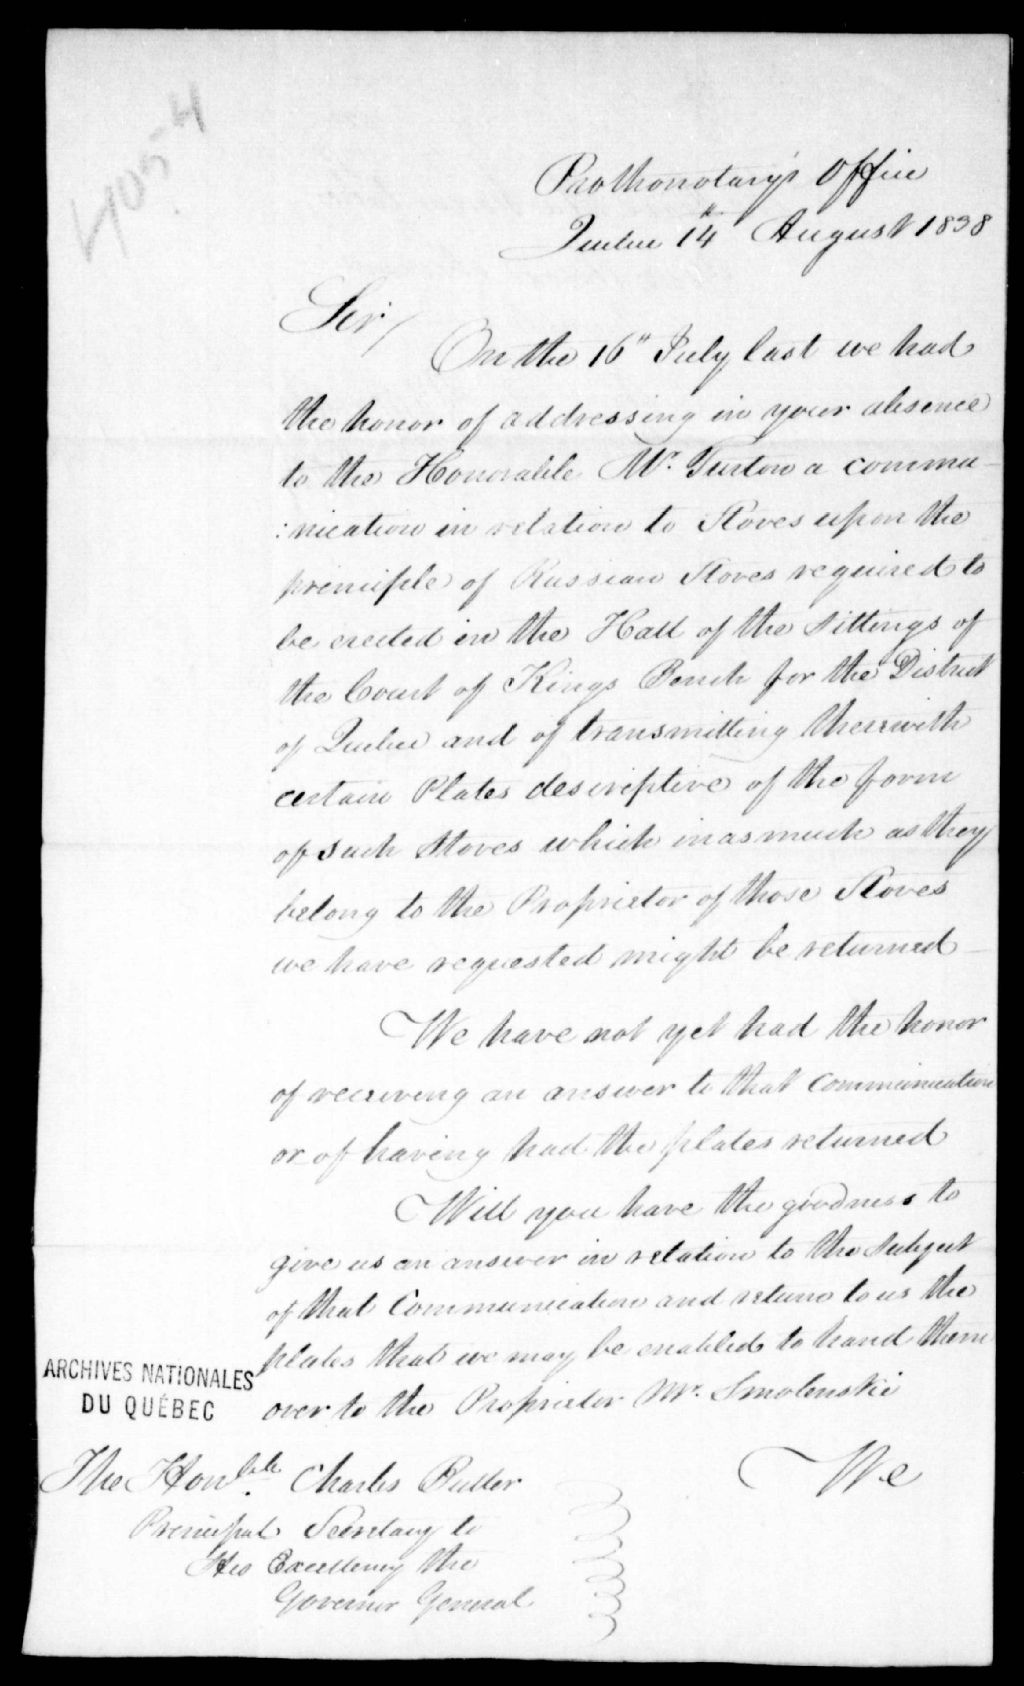 4054
Prothonotary's Office
Quebec 14th August 1838
Sir/
On the 16" July last we had
the honor of addressing in your absence
to the Honorable Mr. Turton a commu-
:nication in relation to Stoves upon the
principle of Russian Stoves required to
be erected in the Hall of the Sittings of
the Court of Kings Bench for the District
of Quebec and of transmitting therewith
certain Plates descriptive of the form
of such Stoves which in as much as they
belong to the Proprietor of those Stoves
we have requested might be returned -
We have not yet had the honor
of receiving an answer to that Communication
or of having had the plates returned
Will you have the goodness to
give us an answer in relation to the Subject
of that Communication and return to us the
plates that we may be enabled to hand them
over to the Proprietor Mr. Smolenskie
ARCHIVES NATIONALES
DU QUÉBEC
We
The Honble. Charles Buller
Principal Secretary to
His Excellency the
Governor General